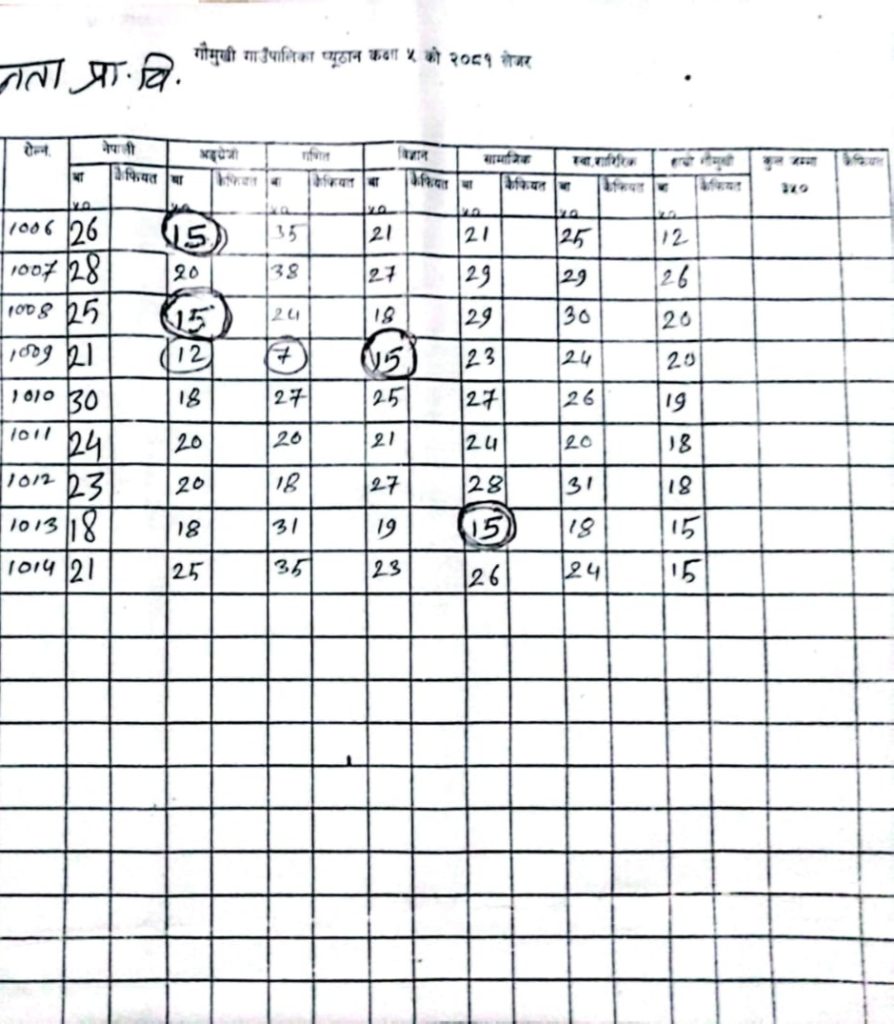 गौमुखी गाउँपालिका प्यूठान कक्षा ५ को २०८१ लेजर
नता प्रा. वि.
रोल्नं. नेपाली अङ्ग्रेजी गणित विज्ञान सामाजिक स्वा.शारिरिक हाम्रो गौमुखी कुल जम्मा कैफियत
बा कैफियत बा कैफियत बा कैफियत बा कैफियत बा कैफियत बा कैफियत बा कैफियत ३५०
५० ५० ५० ५० ५० ५० ५०
1006 26 15 35 21 21 25 12
1007 28 20 38 27 29 29 26
1008 25 15 24 18 29 30 20
1009 21 12 7 15 23 24 20
1010 30 18 27 25 27 26 19
1011 24 20 20 21 24 20 18
1012 23 20 18 27 28 31 18
1013 18 18 31 19 15 18 15
1014 21 25 35 23 26 24 15